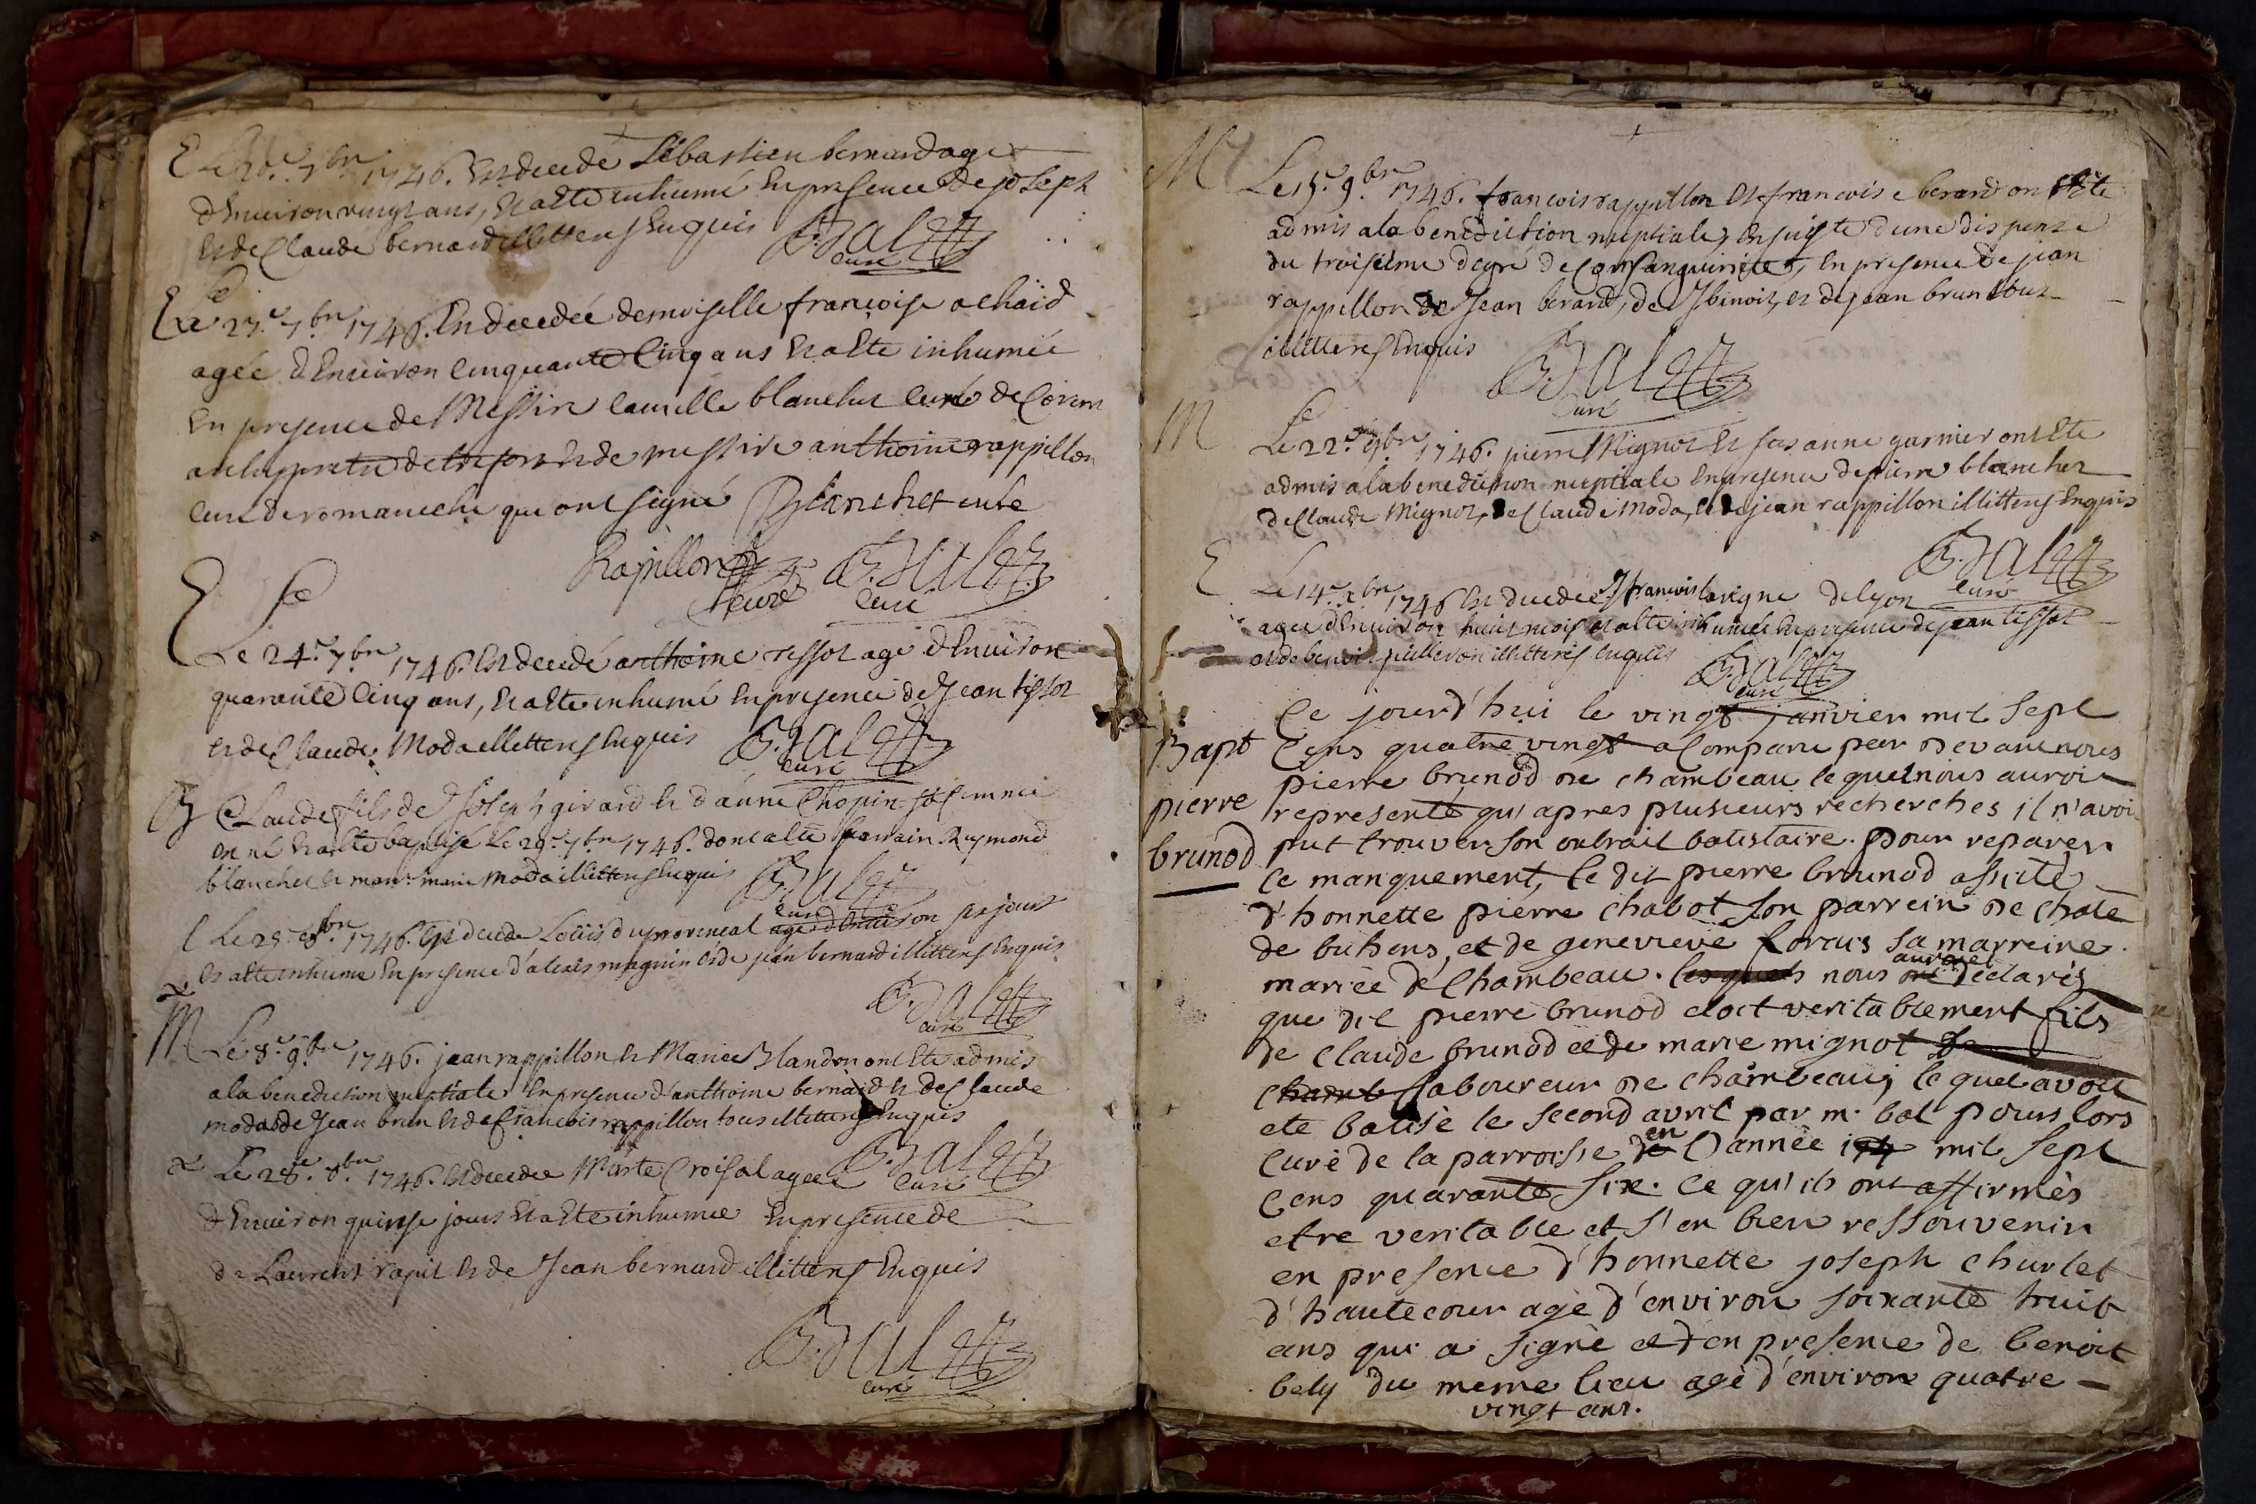 E Le 20.e 7bre 1746. Est decedé Sébastien bernard agé
d'Environ vingt ans, Et a Eté inhumé En presence de joseph
Et de Claude bernard illitterés Enquis
curé
E Le 23.e 7bre 1746. Est decedée demoiselle françoise
agée d'Environ Cinquante Cinq ans Et a Eté inhumée
En presence de Messire Camille blanchet Curé de
archipretre de Et de messire anthoine rappillon
Curé de romaneche qui ont signé Blanchet curé
Rapillon
curé curé
E Le 24.e 7bre 1746. Est decedé anthoine ressot agé d'Environ
quarante Cinq ans, Et a Eté inhumé En presence de Jean tissot
Et de Claude Moda illitterés Enquis
curé
B Claude fils de Joseph girard Et d'anne Chopin sa femme
Est né Et a eté baptisé Le 29.e 7bre 1746. dont a eté parrain Reymond
blanchet Et marr. marie moda illitterés Enquis
curé
E Le 25.e 8bre 1746. Est decedé Loüis du provincal agé d'Environ jours
Et a eté inhumé En presence d'alexis maguin Et de jean bernard illitterés Enquis
curé
M Le 8.e 9bre 1746. jean rappillon Et Marie Blandon ont Eté admis
a la benediction nuptiale En presence d'anthoine bernard Et de Claude
moda de Jean brun Et de francois rappillon tous illitterés Enquis
Le 28.e 8bre 1746. Est decedée Marte Croisal agée
curé
d'Environ quinse jours Et a Eté inhumée En presence de
de Laurent rapit Et de Jean bernard illitterés Enquis
curé
M Le 15.e 9bre 1746. francois rappillon Et francoise berard ont Eté
admis a la benediction nuptiale, En suitte d'une dispense
du troisieme degré de Consanguinité, En presence de jean
rappillon de Jean berard, de benoit, Et de jean brun tous
illitterés Enquis
curé
M Le 22.e 9bre 1746. pierre Mignot Et susanne garnier ont Eté
admis a la benediction nuptiale En presence de pierre blanchet
de Claude Mignot, de Claude Moda, Et de jean rappillon illitterés Enquis
curé
E Le 14.e xbre 1746 Est decedée francoise lavigne de lyon
agée d'Environ huit mois Et a Eté inhumée En presence de jean tissot
Et de benoit pilleron illitterés Enquis
curé
Ce jourd'hui le vingt janvier mil sept
Bapt Cens quatre vingt a Comparu par devant nous
pierre brunod de chambeau lequel nous auroit
pierre representé qu'apres plusieurs recherches il n'avoit
brunod put trouver son extrait batistaire. pour reparer
Ce manquement, le dit pierre brunod assisté
d'honnette pierre chabot son parrein de
de buhens, et de genevieve forais sa marreine
mariée de Chambeau. lesquels nous ont auroit déclarés
que dit pierre brunod etoit veritablement fils
de Claude brunod et de marie mignot de
Chamb laboureur de chambeau, le quel avoit
eté batisé le second avril par m. bal pour lors
Curé de la parroisse de en l'année 174 mil sept
Cens quarante six. Ce qu'ils ont affirmés
etre veritable et s'en bien ressouvenir
en presence d'honnette joseph churlet
d'hautecour agé d'environ soixante huit
ans qui a signé et en presence de benoit
bely du meme lieu agé d'environ quatre
vingt ans.